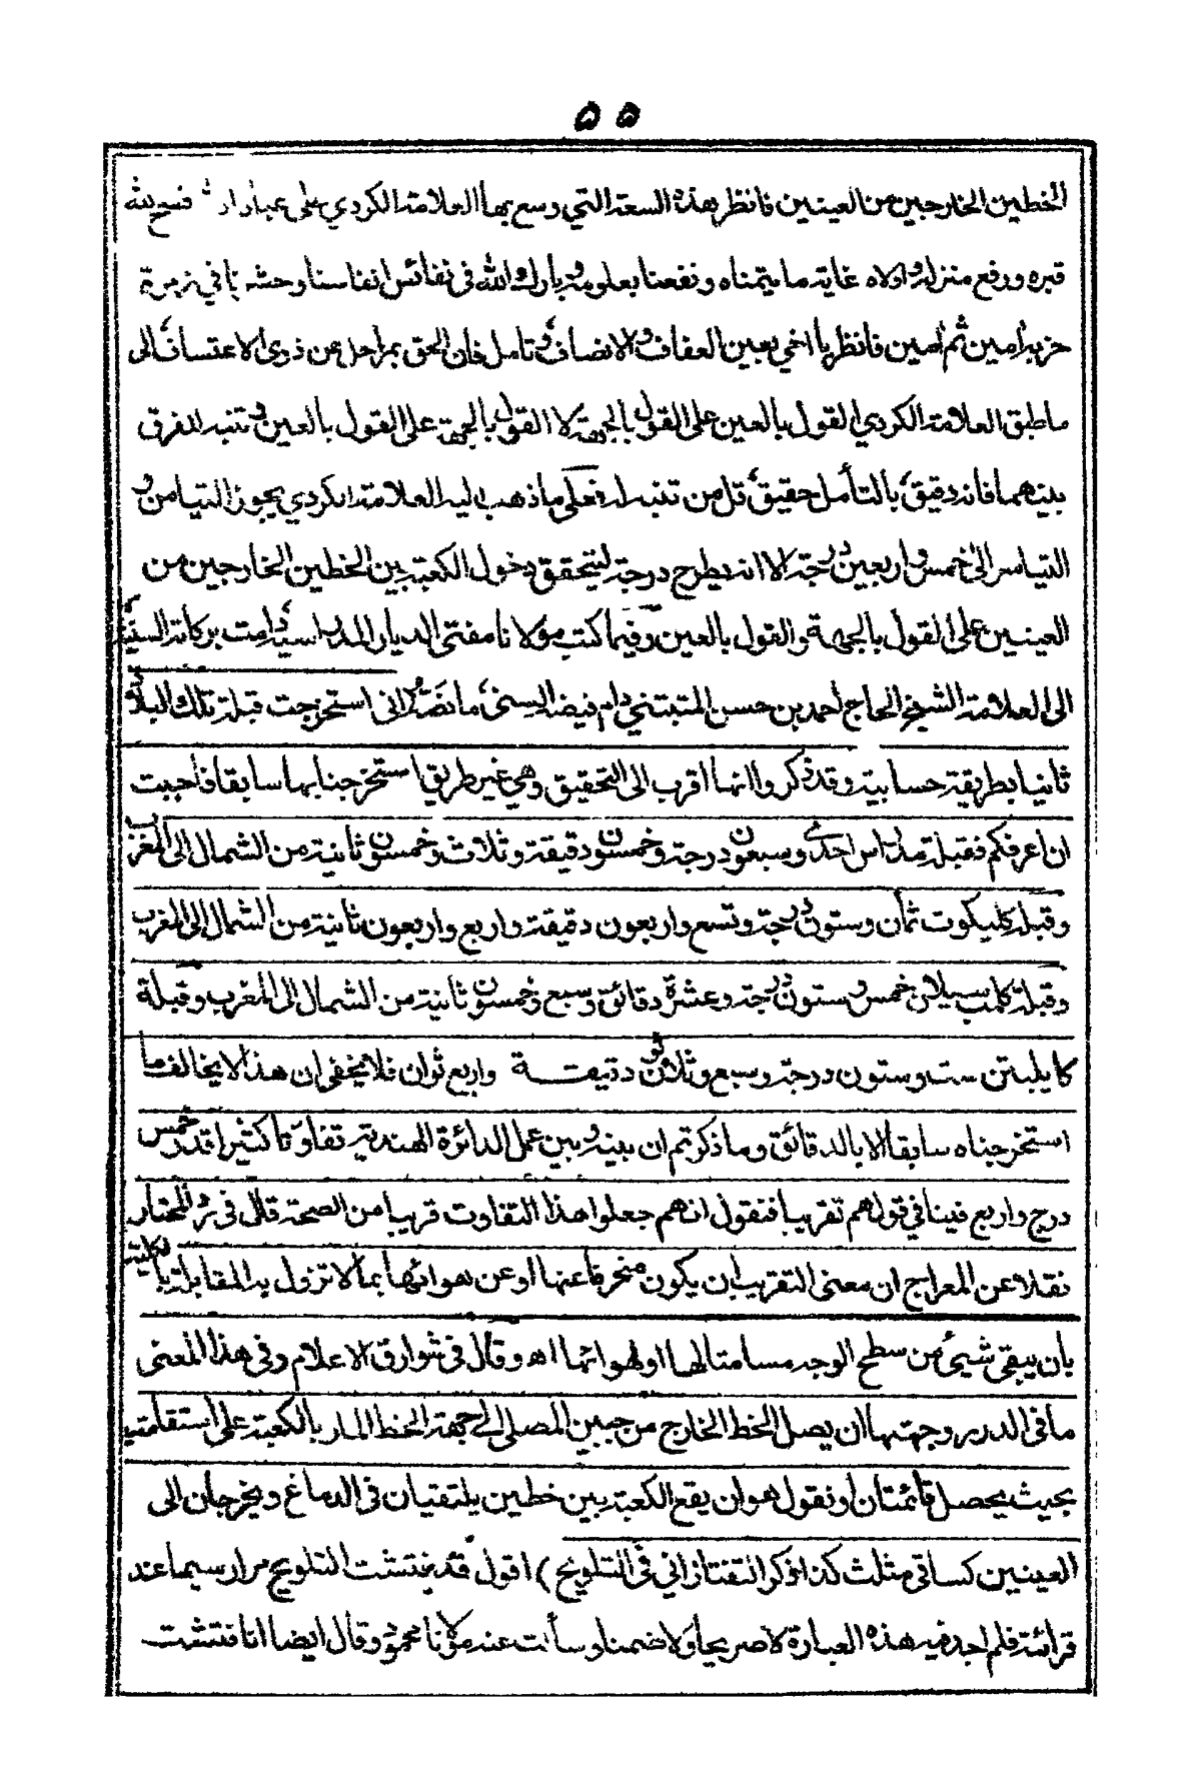 ٥٥
الخطين الخارجين من العينين فانظر بهذه السعة التي وسع بها العلامة الكردي على فسح الله
قبره ورفع منزله واولاه غاية ما يتمناه ونفعنا بعلومه وبارك الله فى نفائس انفاسنا وحشرنا في زمرة
حزبه امين ثم امين فانظر يا اخي بعين العفاف والانصاف وتامل فان الحق بمراحل عن ذوى الاعتساف الى
ما طبق العلامة الكردي القول بالعين على القول بالجهة لا القول بالجهة على القول بالعين وتنبه لفرق
بينهما فانه دقيق بالتأمل حقيق قل من تنبه له فعلى ما ذهب اليه العلامة الكردي يجوز التيامن و
التياسر الى خمس واربعين درجة الا انه يطرح درجة ليتحقق دخول الكعبة بين الخطين الخارجين من
العينين على القول بالجهة والقول بالعين وفيما كتب مولانا مفتى الديار المدراسية دامت بركاته السنية
الى العلامة الشيخ الحاج احمد بن حسن المتبتني دام فيضه السني ما نصه انى استخرجت قبلة تلك البلاد
ثانيا بطريقة حسابية وقد ذكروا انها اقرب الى التحقيق وهي غير طريق استخرجنا بها سابقا فاحببت
ان اعرفكم فقبلة مدراس احدى وسبعون درجة وخمسون دقيقة وثلاث وخمسون ثانية من الشمال الى المغرب
وقبلة كليكوت ثمان وستون درجة وتسع واربعون دقيقة واربع واربعون ثانية من الشمال الى المغرب
وقبلة كلمب سيلان خمس وستون درجة وعشرة دقائق وسبع وخمسون ثانية من الشمال الى المغرب وقبلة
كايلبتن ست وستون درجة وسبع وثلاثون دقيقة واربع ثوان فلا يخفى ان هذا لا يخالف ما
استخرجناه سابقا الا بالدقائق وما ذكرتم ان بينه وبين عمل الدائرة الهندية تفاوتا كثيرا قدر خمس
درج واربع فينا في قولهم تقريبا فنقول انهم جعلوا هذا التفاوت قريبا من الصحة قال فى رد المحتار
نقلا عن المعراج ان معنى التقريب ان يكون منحرفا عنها او عن هوائها بما لا تزول به المقابلة بالكلية
بان يبقى شيئ من سطح الوجه مسامتا لها او لهوائها اھ وقال فى شوارق الاعلام وفى هذا المعنى
ما فى الدرر وجهتها ان يصل الخط الخارج من جبين المصلى الى جهة الخط المار بالكعبة على استقامته
بحيث يحصل قائمتان او نقول هو ان يقع الكعبة بين خطين يلتقيان فى الدماغ ويخرجان الى
العينين كساقى مثلث كذا ذكر التفتازاني فى التلويح ) اقول قد فتشت التلويح مرارا سيما عند
قرائته فلم اجد فيه هذه العبارة لا صريحا ولا ضمنا وسألت عند مولانا محمود وقال ايضا انا فتشت